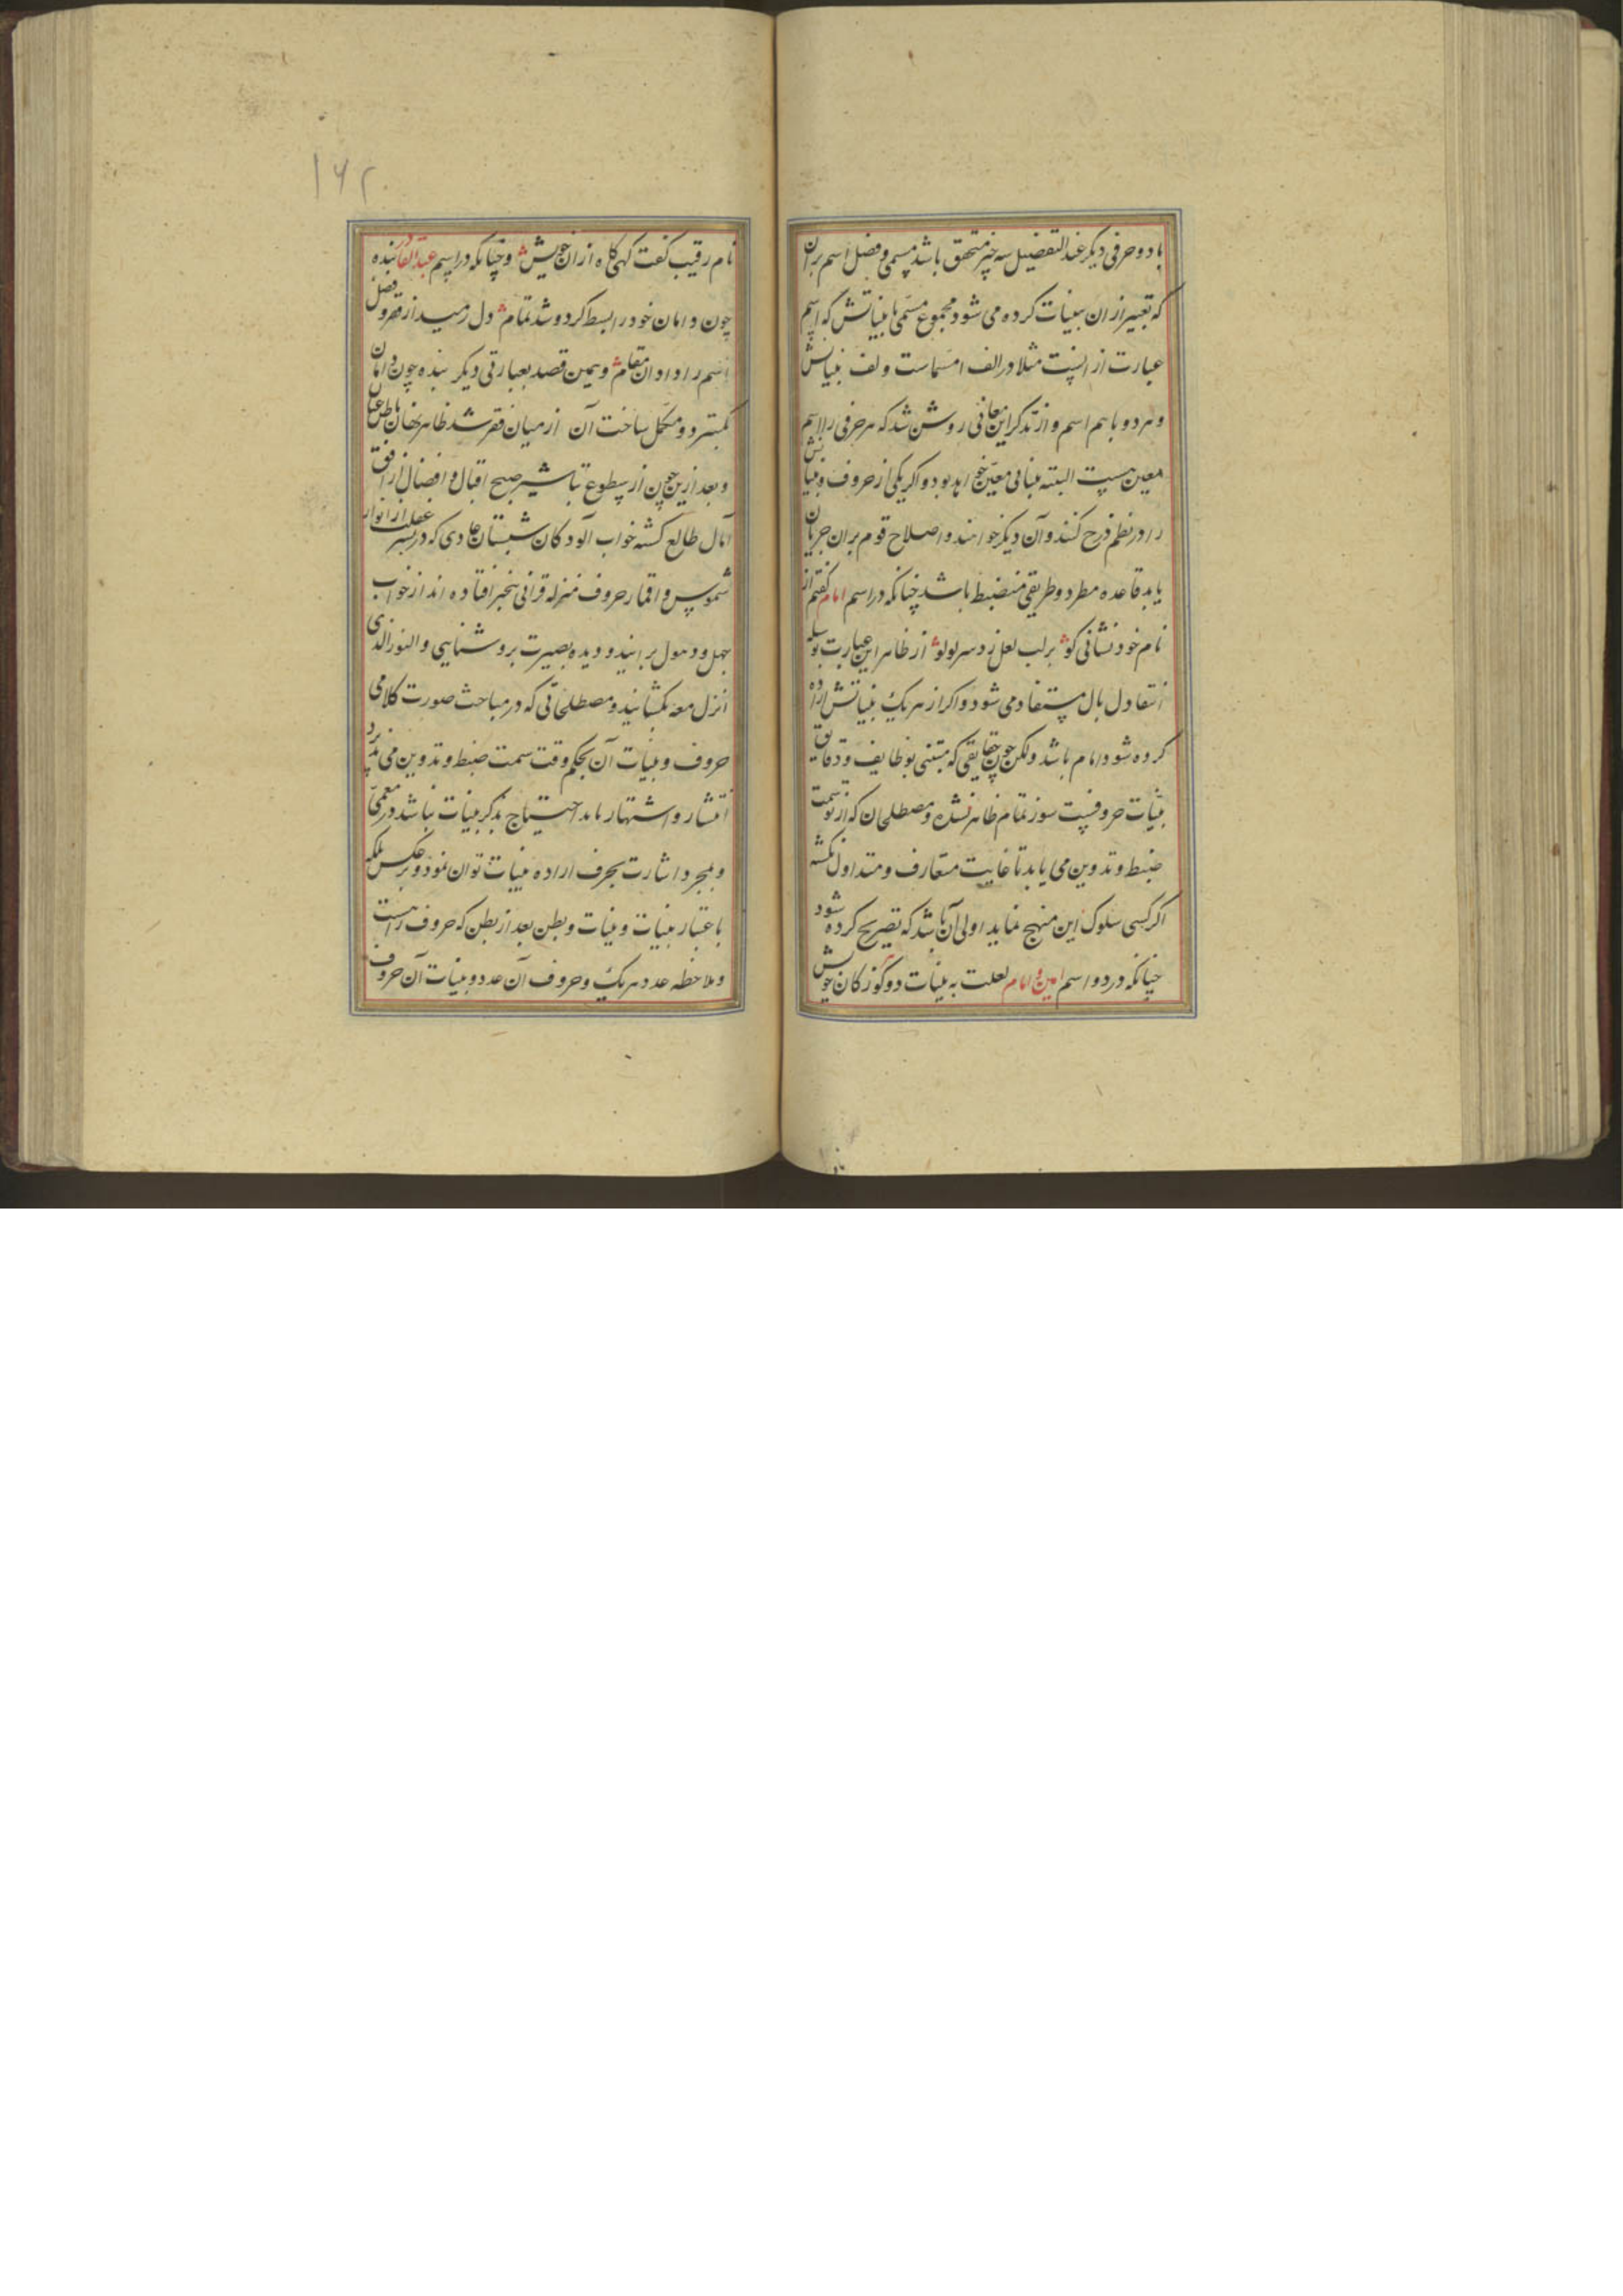 با دو حرفی دیکر عند التفصیل سه چیز متحقق باشد مسمی و فضل اسم بران
که تعبیر از ان ببینات کرده می شود و مجموع مسمی با بیناتش که اسم
عبارت از انست مثلا در الف ا مسماست و لف بیناتش
و هر دو باهم اسم و از تذکر این معانی روشن شد که هر حرفی را اسم
معین هست البته بینات معین خواهد بود و اکر یکی از حروف و بیناتش
را در نظم درج کنند و آن دیکر خواهند و اصلاح قوم بران جریان
یابد قاعده مطرد و طریقی منضبط باشد چنانکه در اسم امام کفتم از
نام خود نشانی کو برلب لعل زد سر لولو از ظاهر این عبارت بوسله
انتقاد لب ال مستفاد می شود و اکر از هر یک بیناتش اراده
کرده شود امام باشد ولکن چون حقایقی که مبتنی بو ظایف و دقایق
بینات حروفیست هنوز تمام ظاهر نشده و مصطلحان که از نو سمت
ضبط و تدوین می یابد تا غایت متعارف و متداول نکشته
اکر کسی سلوک این منهج نماید اولی آن باشد که تصریح کرده شود
چنانکه در دو اسم امین و امام لعلت به بینات دو کوز کان خویش
۱۶۲
نام رقیب کفت کهی کاه از ان خویش و چنانکه در اسم عبد القادر بنده
چون دامان خود را بسط کرد و شد تمام دل رمید از فقر و فضل
اسم را داد ان مقام و بهمین قصد بعبارتی دیکر بنده چون دامان
بکسترد و مکمل ساخت آن از میان فقر شد ظاهر نهان باطن عیان
و بعد ازین چون از سطوع تباشیر صبح اقبال و افضال از افق
آمال طالع کشته خواب آلودکان شبستان عادی که در بستر غفلت از انوار
شموس و اقمار حروف منزله قرانی بیخبر افتاده اند از خواب
جهل و ذهول برایند و دیده بصیرت بروشنایی و النور الذی
انزل معه بکشایند و مصطلحاتی که در مباحث صورت کلامی
حروف و بینات آن بحکم وقت سمت ضبط و تدوین می پذیرد
انتشار و اشتهار یابد احتیاج بذکر بینات نباشد در معمی
و بمجرد اشارت بحرف اراده بینات توان نمود و برعکس بلکه
باعتبار بینات و بینات و بطن بعد از بطن که حروف راست
و ملاحظه عدد هر یک و حروف آن عدد و بینات آن حروف